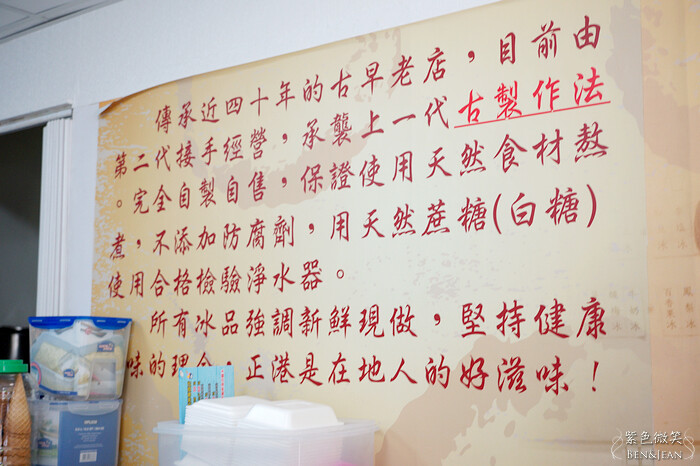 傳承近四十年的古早老店，目前由
第二代接手經營，承襲上一代古製作法
。完全自製自售，保證使用天然食材熬
煮，不添加防腐劑，用天然蔗糖(白糖)
使用合格檢驗淨水器。
所有冰品強調新鮮現做，堅持健康
味的理念，正港是在地人的好滋味！
紫色微笑
BEN&JEAN